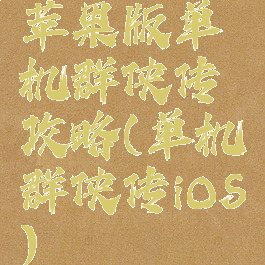 苹果版单
机群侠传
攻略(单机
群侠传iOS
)